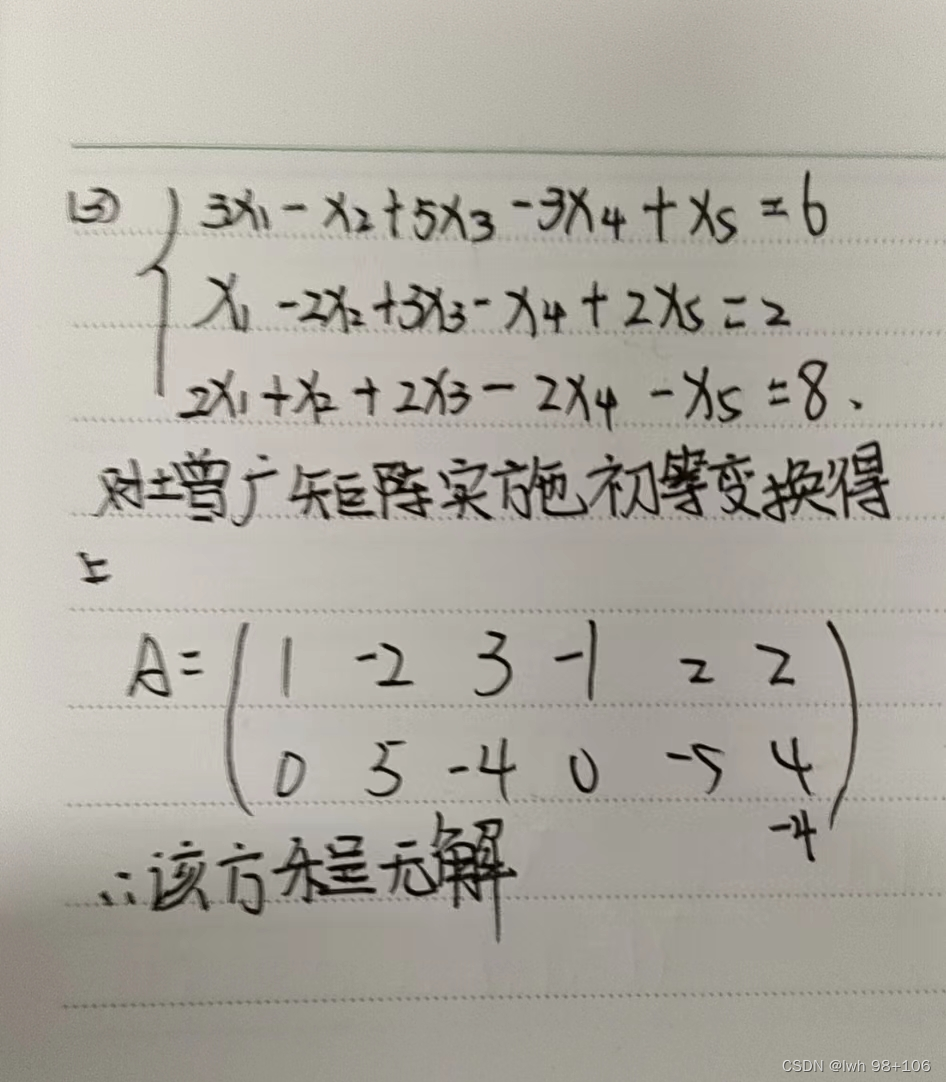 (3) 3x₁-x₂+5x₃-3x₄+x₅=6
x₁-2x₂+3x₃-x₄+2x₅=2
2x₁+x₂+2x₃-2x₄-x₅=8.
对增广矩阵实施初等变换得
A= 1 -2 3 -1 2 2
0 5 -4 0 -5 4
-4
∴该方程无解
CSDN @lwh 98+106